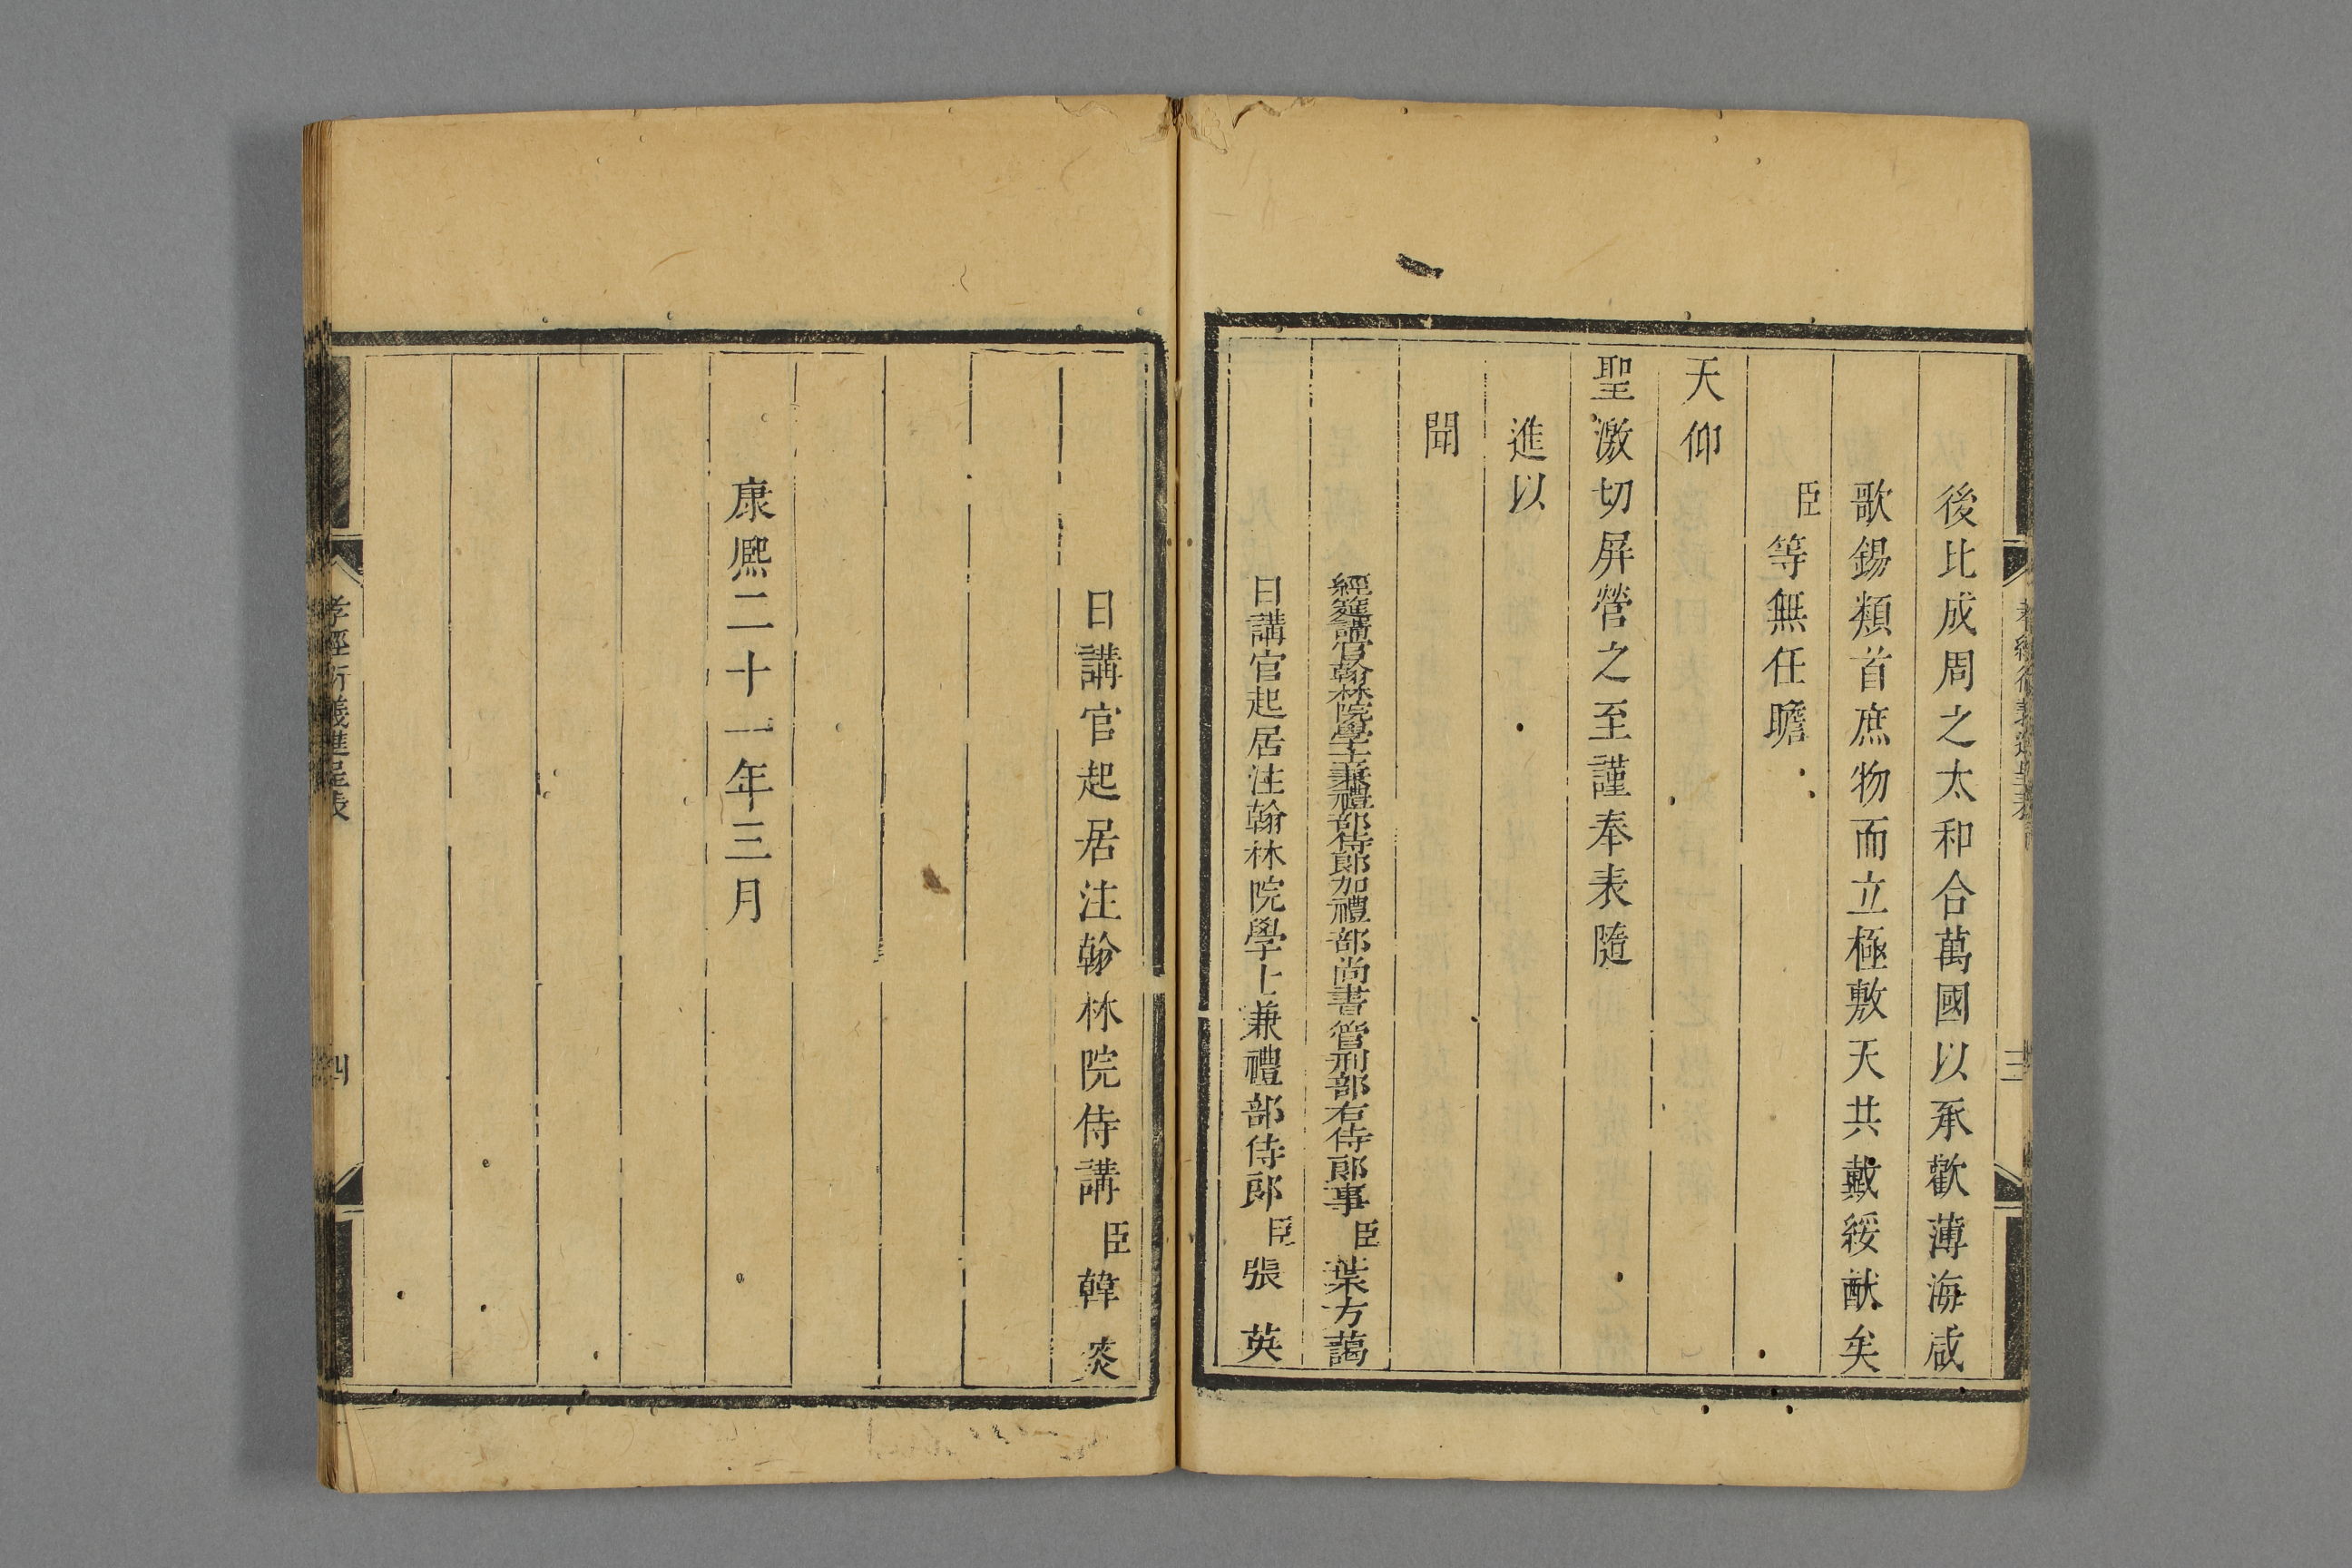 後比成周之太和合萬國以承歡薄海咸
歌錫類首庶物而立極敷天共戴綏猷矣
臣等無任瞻
天仰
聖激切屏營之至謹奉表隨
進以
聞
經筵講官翰林院學士兼禮部侍郎加禮部尚書管刑部右侍郎事臣葉方藹
日講官起居注翰林院學士兼禮部侍郎臣張英
孝經衍義進呈表
三
日講官起居注翰林院侍講臣韓菼
康熙二十一年三月
孝經衍義進呈表
四